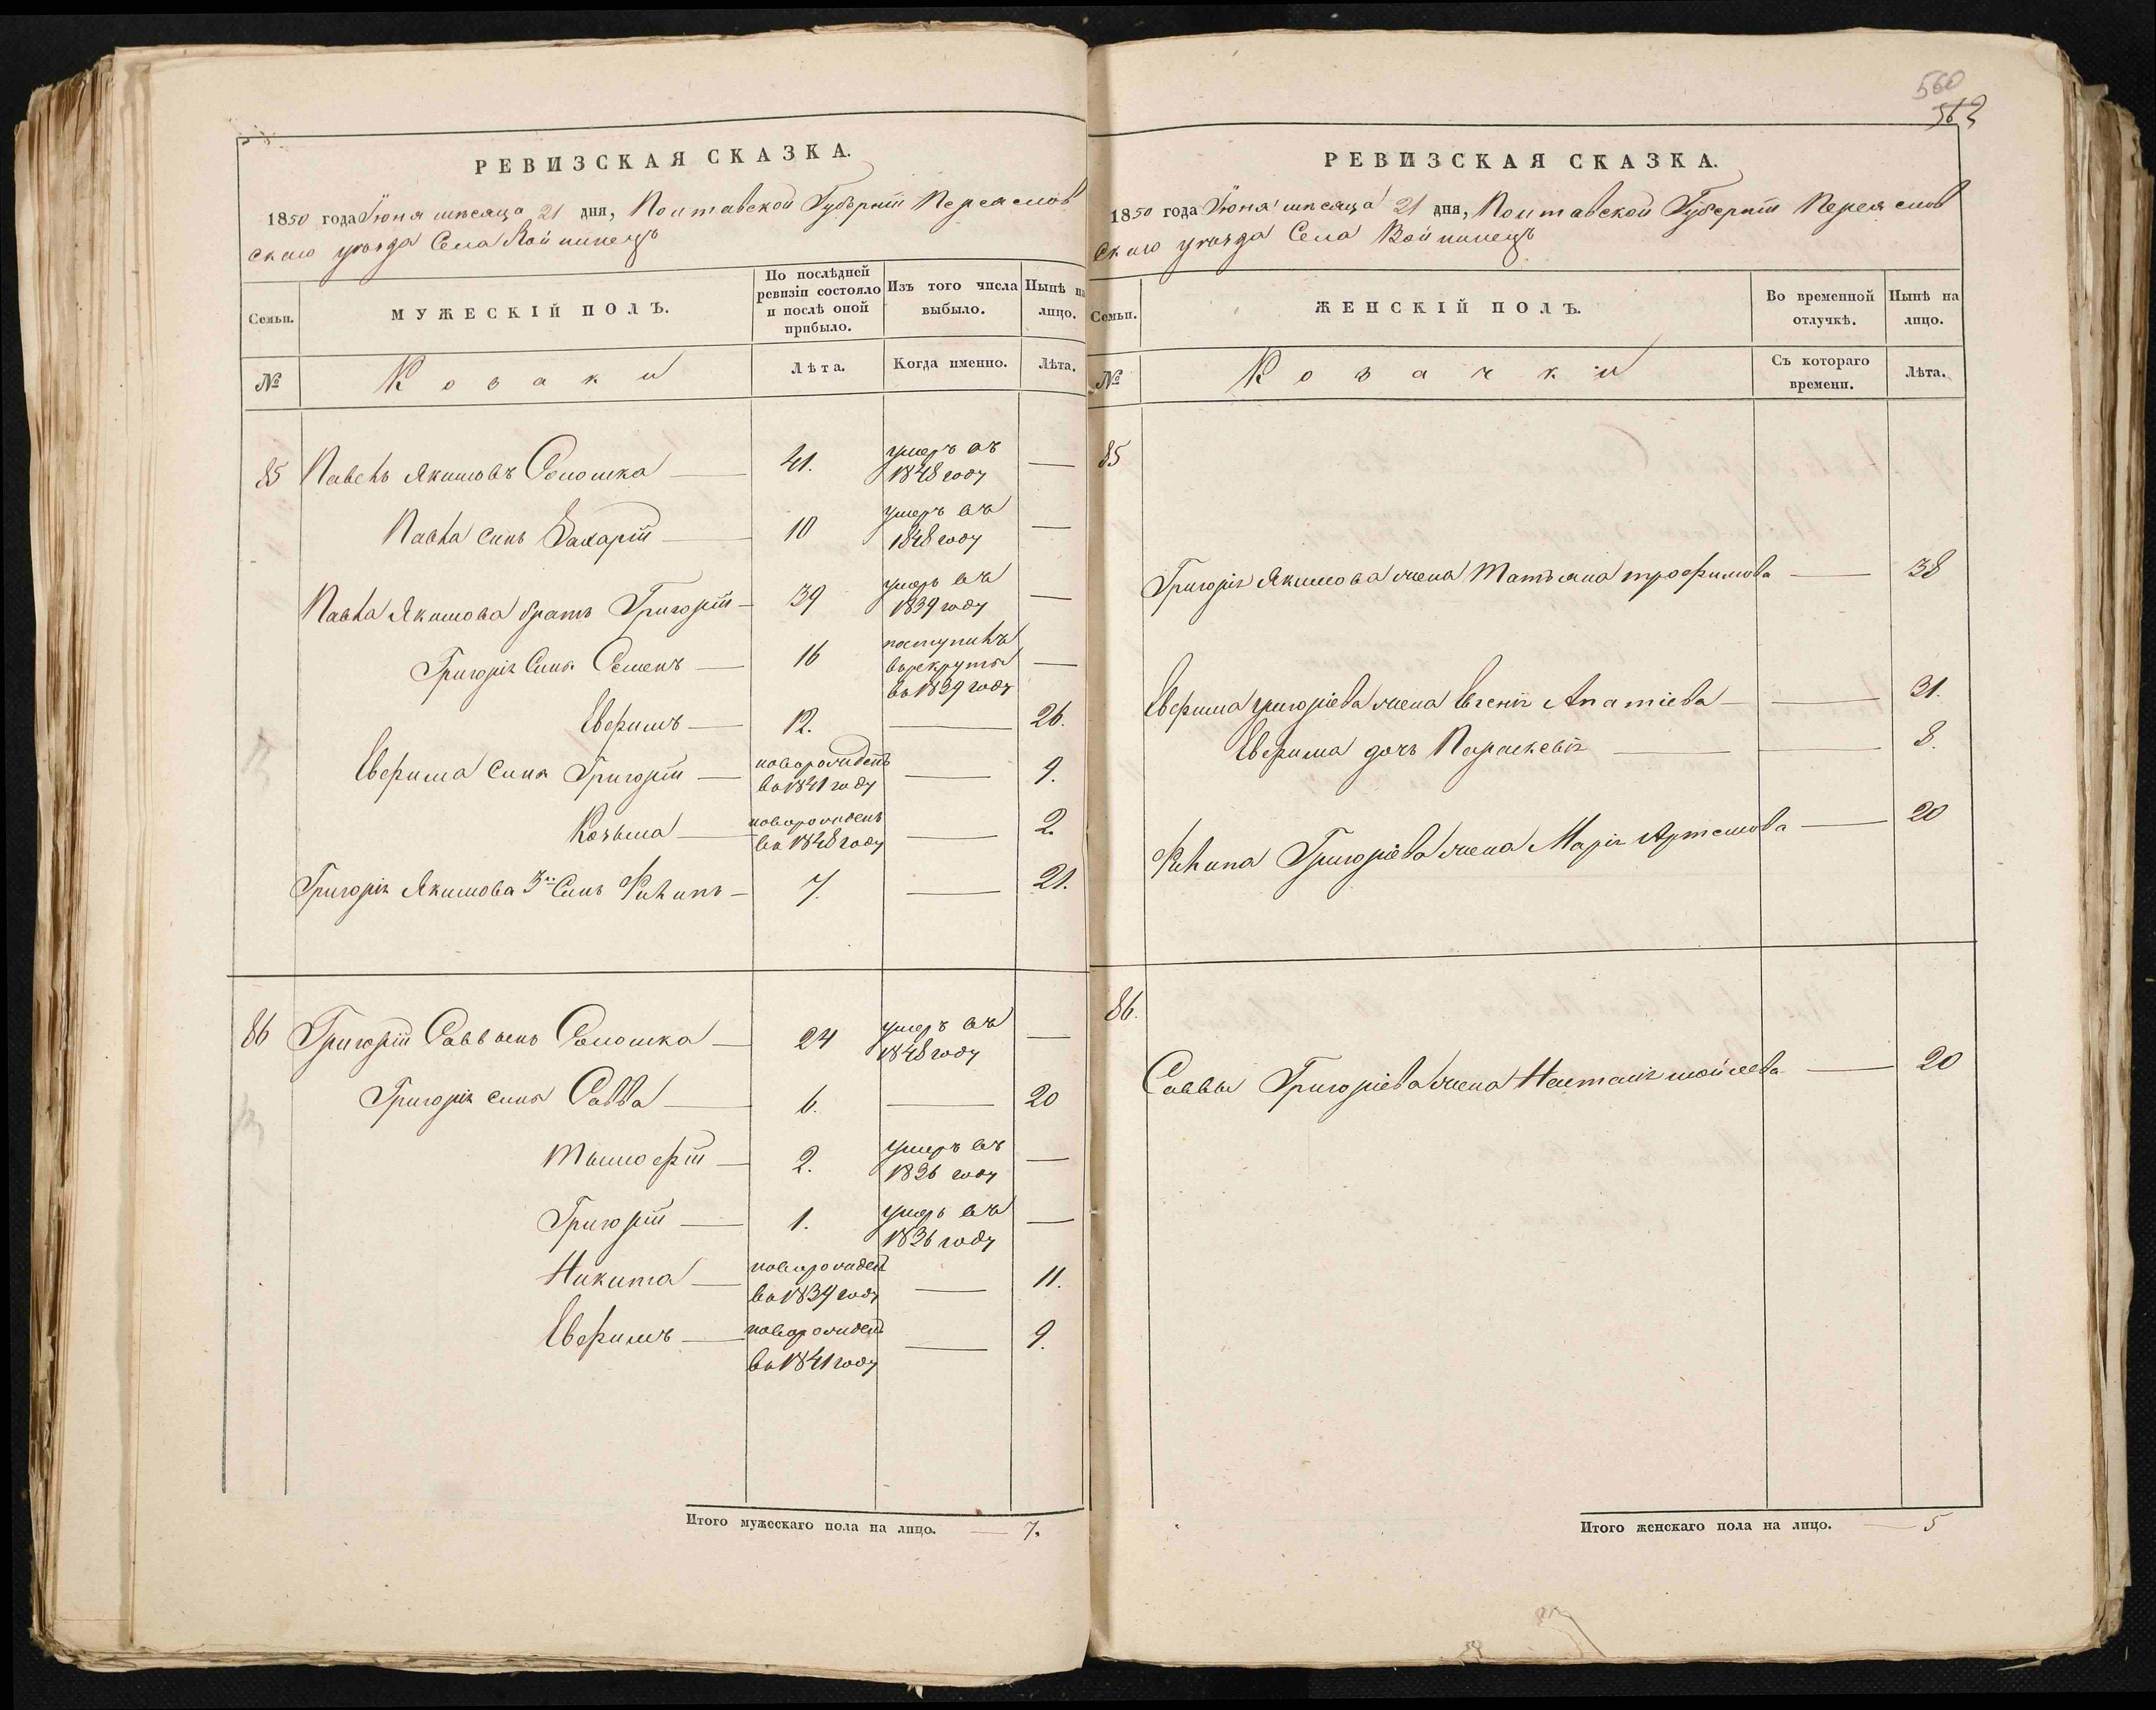 РЕВИЗСКАЯ СКАЗКА.
1850 года Іюня мѣсяца 21 дня, Полтавской Губерніи Переяслов
скаго уѣзда Села Войтовецъ
Семьи.
МУЖЕСКІЙ ПОЛЪ.
По послѣдней ревизіи состояло и послѣ оной прибыло.
Изъ того числа выбыло.
Нынѣ на лицо.
№
Козаки
Лѣта.
Когда именно.
Лѣта.
85 Павелъ Якимовъ Солошка — 41. умеръ въ 1848 году —
Павла сынъ Захарій — 10 умеръ въ 1848 году —
Павла Якимова братъ Григорій — 39 умеръ въ 1839 году —
Григорія Сынъ Семенъ — 16 поступилъ в рекруты в 1839 году —
Евфимъ — 12. — 26.
Евфима Сынъ Григорій — новорожденъ в 1841 году — 9.
Козьма — новорожденъ в 1848 году — 2.
Григорія Якимова 3й Сынъ Филипъ — 7. — 21.
86 Григорій Саввинъ Солошка — 24 умеръ въ 1848 году —
Григорія сынъ Савва — 6. — 20
Тымофій — 2. умеръ въ 1836 году —
Григорій — 1. умеръ въ 1836 году —
Никита — новорожден в 1839 году — 11.
Евфимъ — новорожден в 1841 году — 9.
Итого мужескаго пола на лицо. — 7.
560
РЕВИЗСКАЯ СКАЗКА.
1850 года Іюня мѣсяца 21 дня, Полтавской Губерніи Переяслов
скаго уѣзда Села Войтовецъ
Семьи.
ЖЕНСКІЙ ПОЛЪ.
Во временной отлучкѣ.
Нынѣ на лицо.
№
Козачки
Съ котораго времени.
Лѣта.
85
Григорія Якимова жена Татьяна трофимова — 38
Евфима григоріева жена Евгенія Апатіева — — 31.
Евфима дочь Параскевія — — 8.
Филипа Григоріева жена Марія Артемова — 20
86.
Саввы Григоріева жена Наталія мойсеева — 20
Итого женскаго пола на лицо. — 5